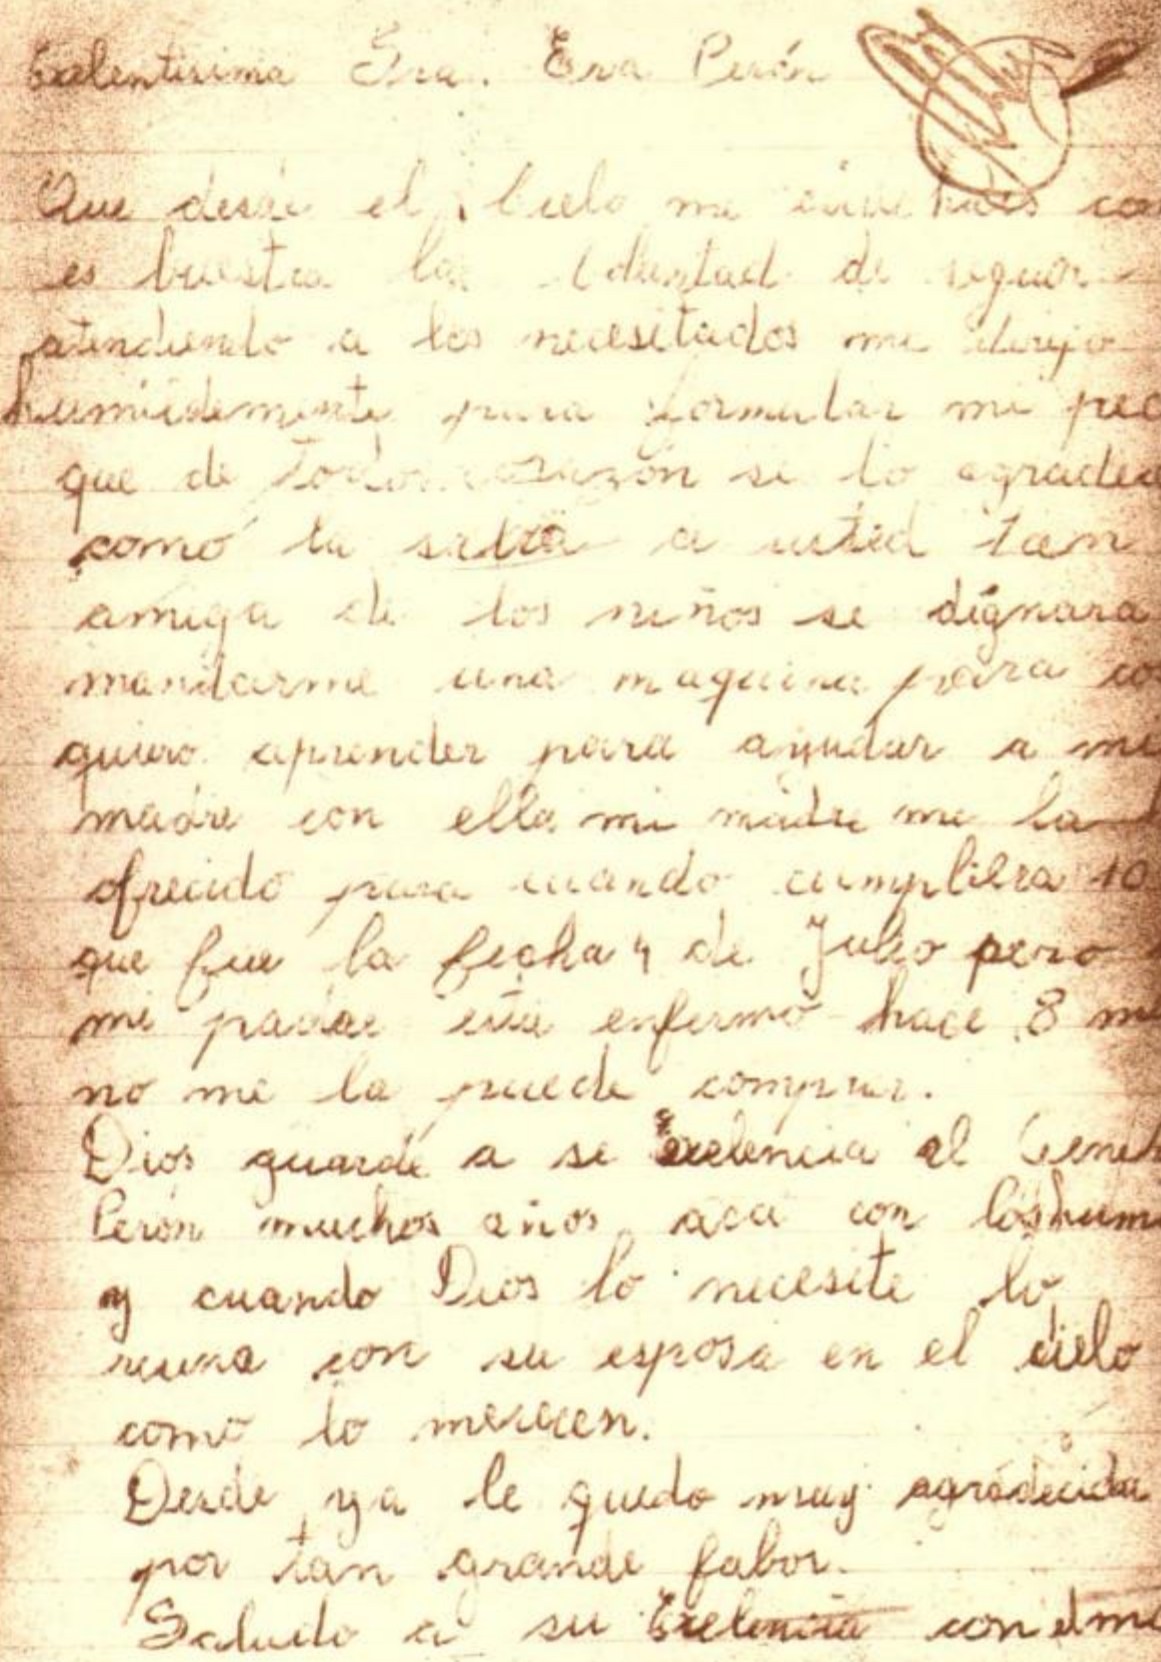 Exelentisima Sra. Eva Perón
Que desde el Cielo me
es buestra la boluntad de seguir
atendiendo a los necesitados me dirijo
humildemente para formular mi
que de todo corazón se lo
como la a usted tan
amiga de los niños se dignara
mandarme una maquina para
quiero aprender para ayudar a mi
madre con ella mi madre me la
ofrecido para cuando cumpliera 10
que fue la fecha 4 de Julio pero
mi padre esta enfermo hace 8
no me la puede comprar.
Dios guarde a se Exelencia el
Perón muchos años aca con los
y cuando Dios lo necesite lo
reuna con su esposa en el cielo
como lo merecen.
Desde ya le quedo muy agradecida
por tan grande fabor.
Saludo a su Exelencia con el